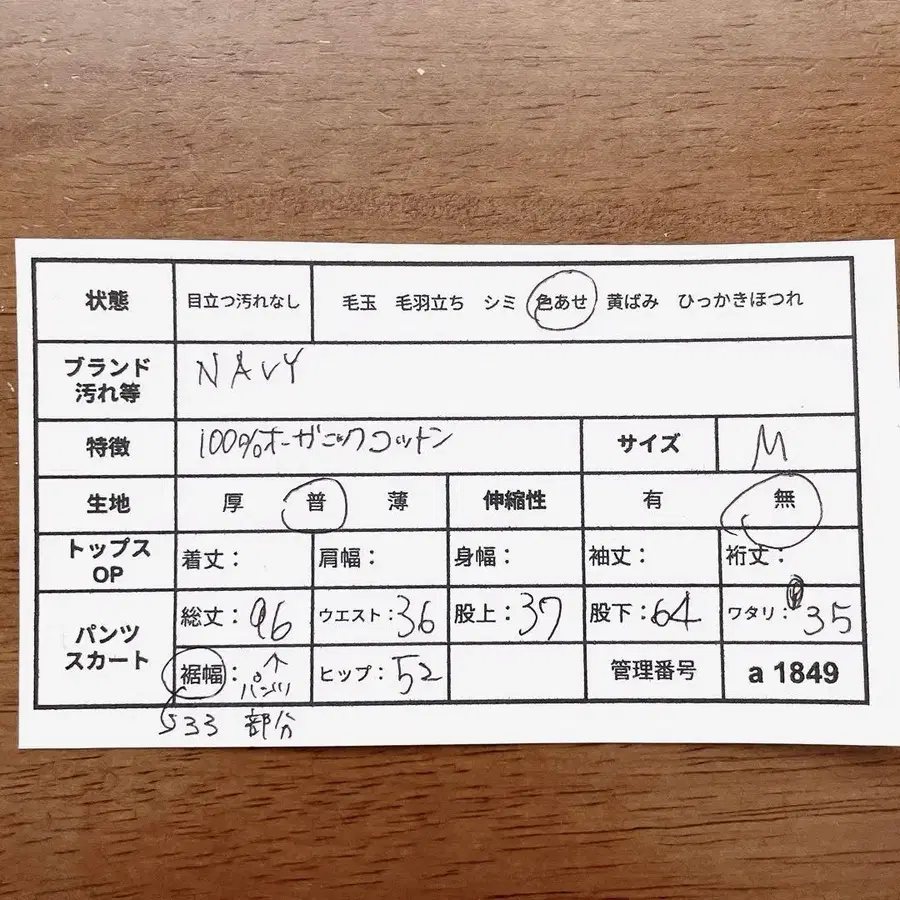 状態 目立つ汚れなし 毛玉 毛羽立ち シミ 色あせ 黄ばみ ひっかきほつれ
ブランド
汚れ等 NAVY
特徴 100%オーガニックコットン サイズ M
生地 厚 普 薄 伸縮性 有 無
トップス
OP 着丈: 肩幅: 身幅: 袖丈: 裄丈:
パンツ
スカート 総丈:96 ウエスト:36 股上:37 股下:64 ワタリ:35
裾幅: ↑ パンツ ヒップ:52 管理番号 a 1849
33 部分